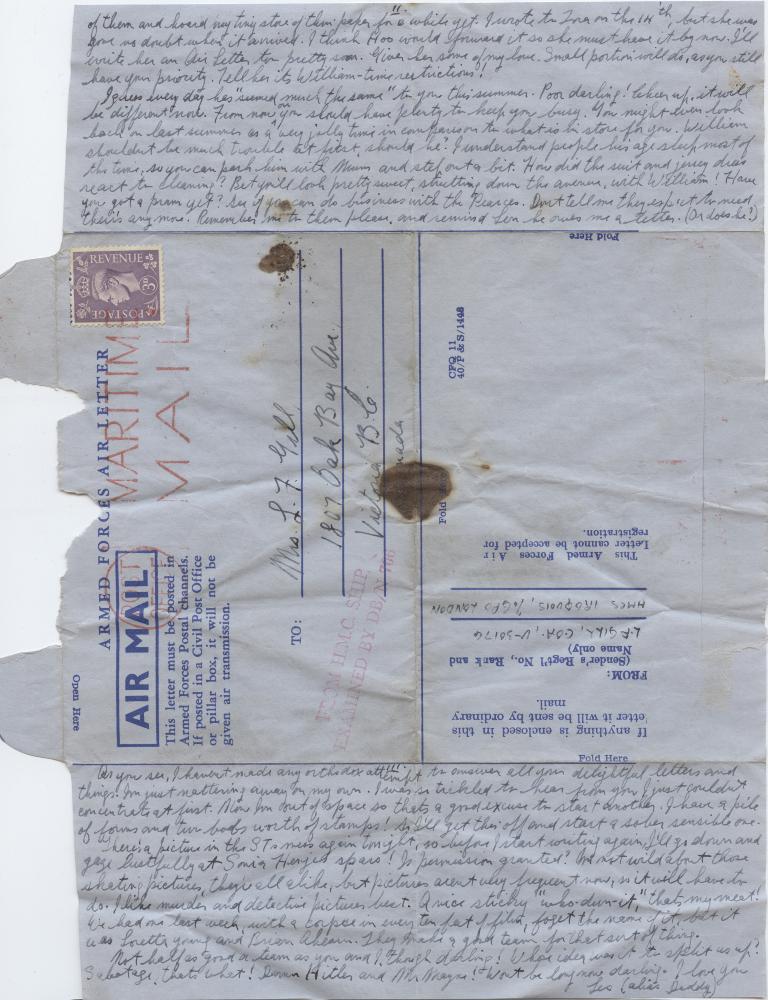 of them and hoard my tiny store of thin paper for a while yet. I wrote to Zora on the 14th, but she was
gone no doubt when it arrived. I think Hoo would forward it so she must have it by now. I'll
write her an Air Letter too pretty soon. Give her some of my love. Small portion will do, as you still
have your priority. Tell her it's William-time restrictions!
I guess every day has "seemed much the same" to you this summer. Poor darling! Cheer up, it will
be different now. From now on you should have plenty to keep you busy. You might even look
back on last summer as a very jolly time in comparison to what is in store for you. William
shouldn't be much trouble at first, should he? I understand people his age sleep most of
the time, so you can park him with Mum and step out a bit. How did the suit and jersey dress
react to cleaning? Bet you'll look pretty sweet, strutting down the avenue, with William! Have
you got a pram yet? See if you can do business with the Pearces. Don't tell me they expect to need
theirs any more. Remember me to them please, and remind Len he owes me a letter. (Or does he?)
REVENUE
POSTAGE
3D
ARMED FORCES AIR LETTER
MARITIME
MAIL
POST
OFFICE
AIR MAIL
This letter must be posted in
Armed Forces Postal channels.
If posted in a Civil Post Office
or pillar box, it will not be
given air transmission.
Open Here
TO:
Mrs. L. F. Gill,
1807 Oak Bay Ave.,
Victoria, B.C.
Canada
FROM H.M.C. SHIP
EXAMINED BY DB/N 766
Fold Here
CFQ 11
40/P & S/1448
Fold
This Armed Forces Air
Letter cannot be accepted for
registration.
HMCS IROQUOIS, % GPO LONDON
L.F. GILL, COA., V-30176
(Sender's Regt'l No., Rank and
Name only)
FROM:
If anything is enclosed in this
letter it will be sent by ordinary
mail.
Fold Here
As you see, I haven't made any orthodox attempt to answer all your delightful letters and
things. I'm just nattering away on my own. I was so tickled to hear from you I just couldn't
concentrate at first. Now I'm out of space so that's a good excuse to start another. I have a pile
of forms and two bobs worth of stamps! So I'll get this off and start a sober sensible one.
There's a picture in the STs mess again tonight, so before I start writing again, I'll go down and
gaze lustfully at Sonia Henje's spars! Is permission granted? I'm not wild about those
skating pictures, they're all alike, but pictures aren't very frequent now, so it will have to
do. I like murder and detective pictures best. A nice sticky "who-dun-it," that's my meat!
We had one last week, with a corpse in every ten feet of film, forget the name of it, but it
was Loretta Young and Brian Ahearn. They make a good team for that sort of thing.
Not half as good a team as you and I, though darling! Whose idea was it to split us up?
Sabotage, that's what! Damn Hitler and Mr. Mayne! Won't be long now darling. I love you
Les (alias Daddy)